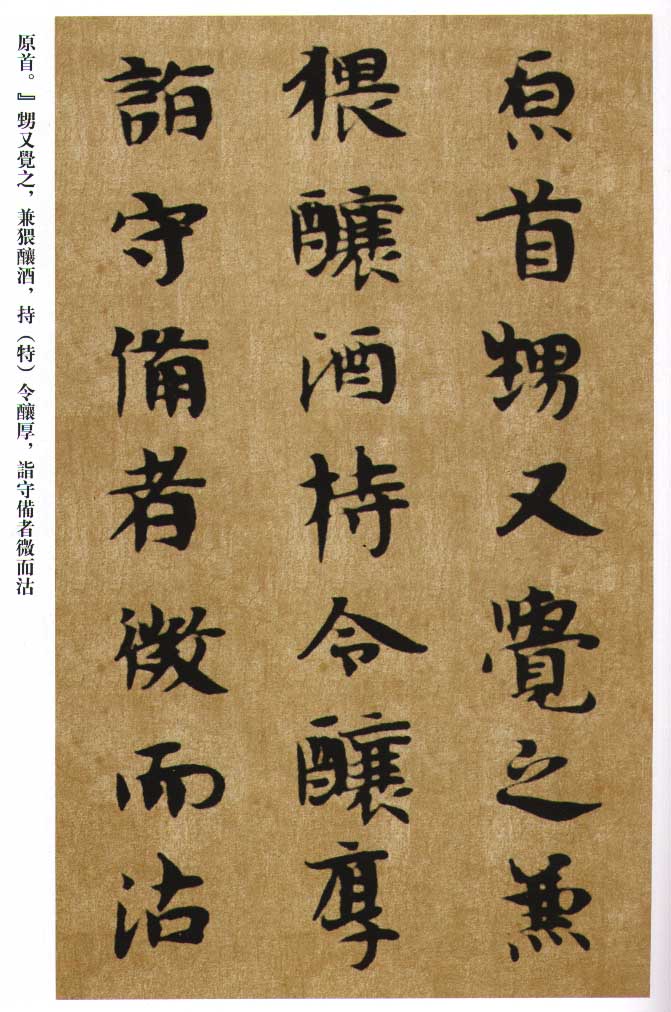 原首甥又覺之兼
猥釀酒持令釀厚
詣守備者微而沽
原首。』甥又覺之，兼猥釀酒，持（特）令釀厚，詣守備者微而沽